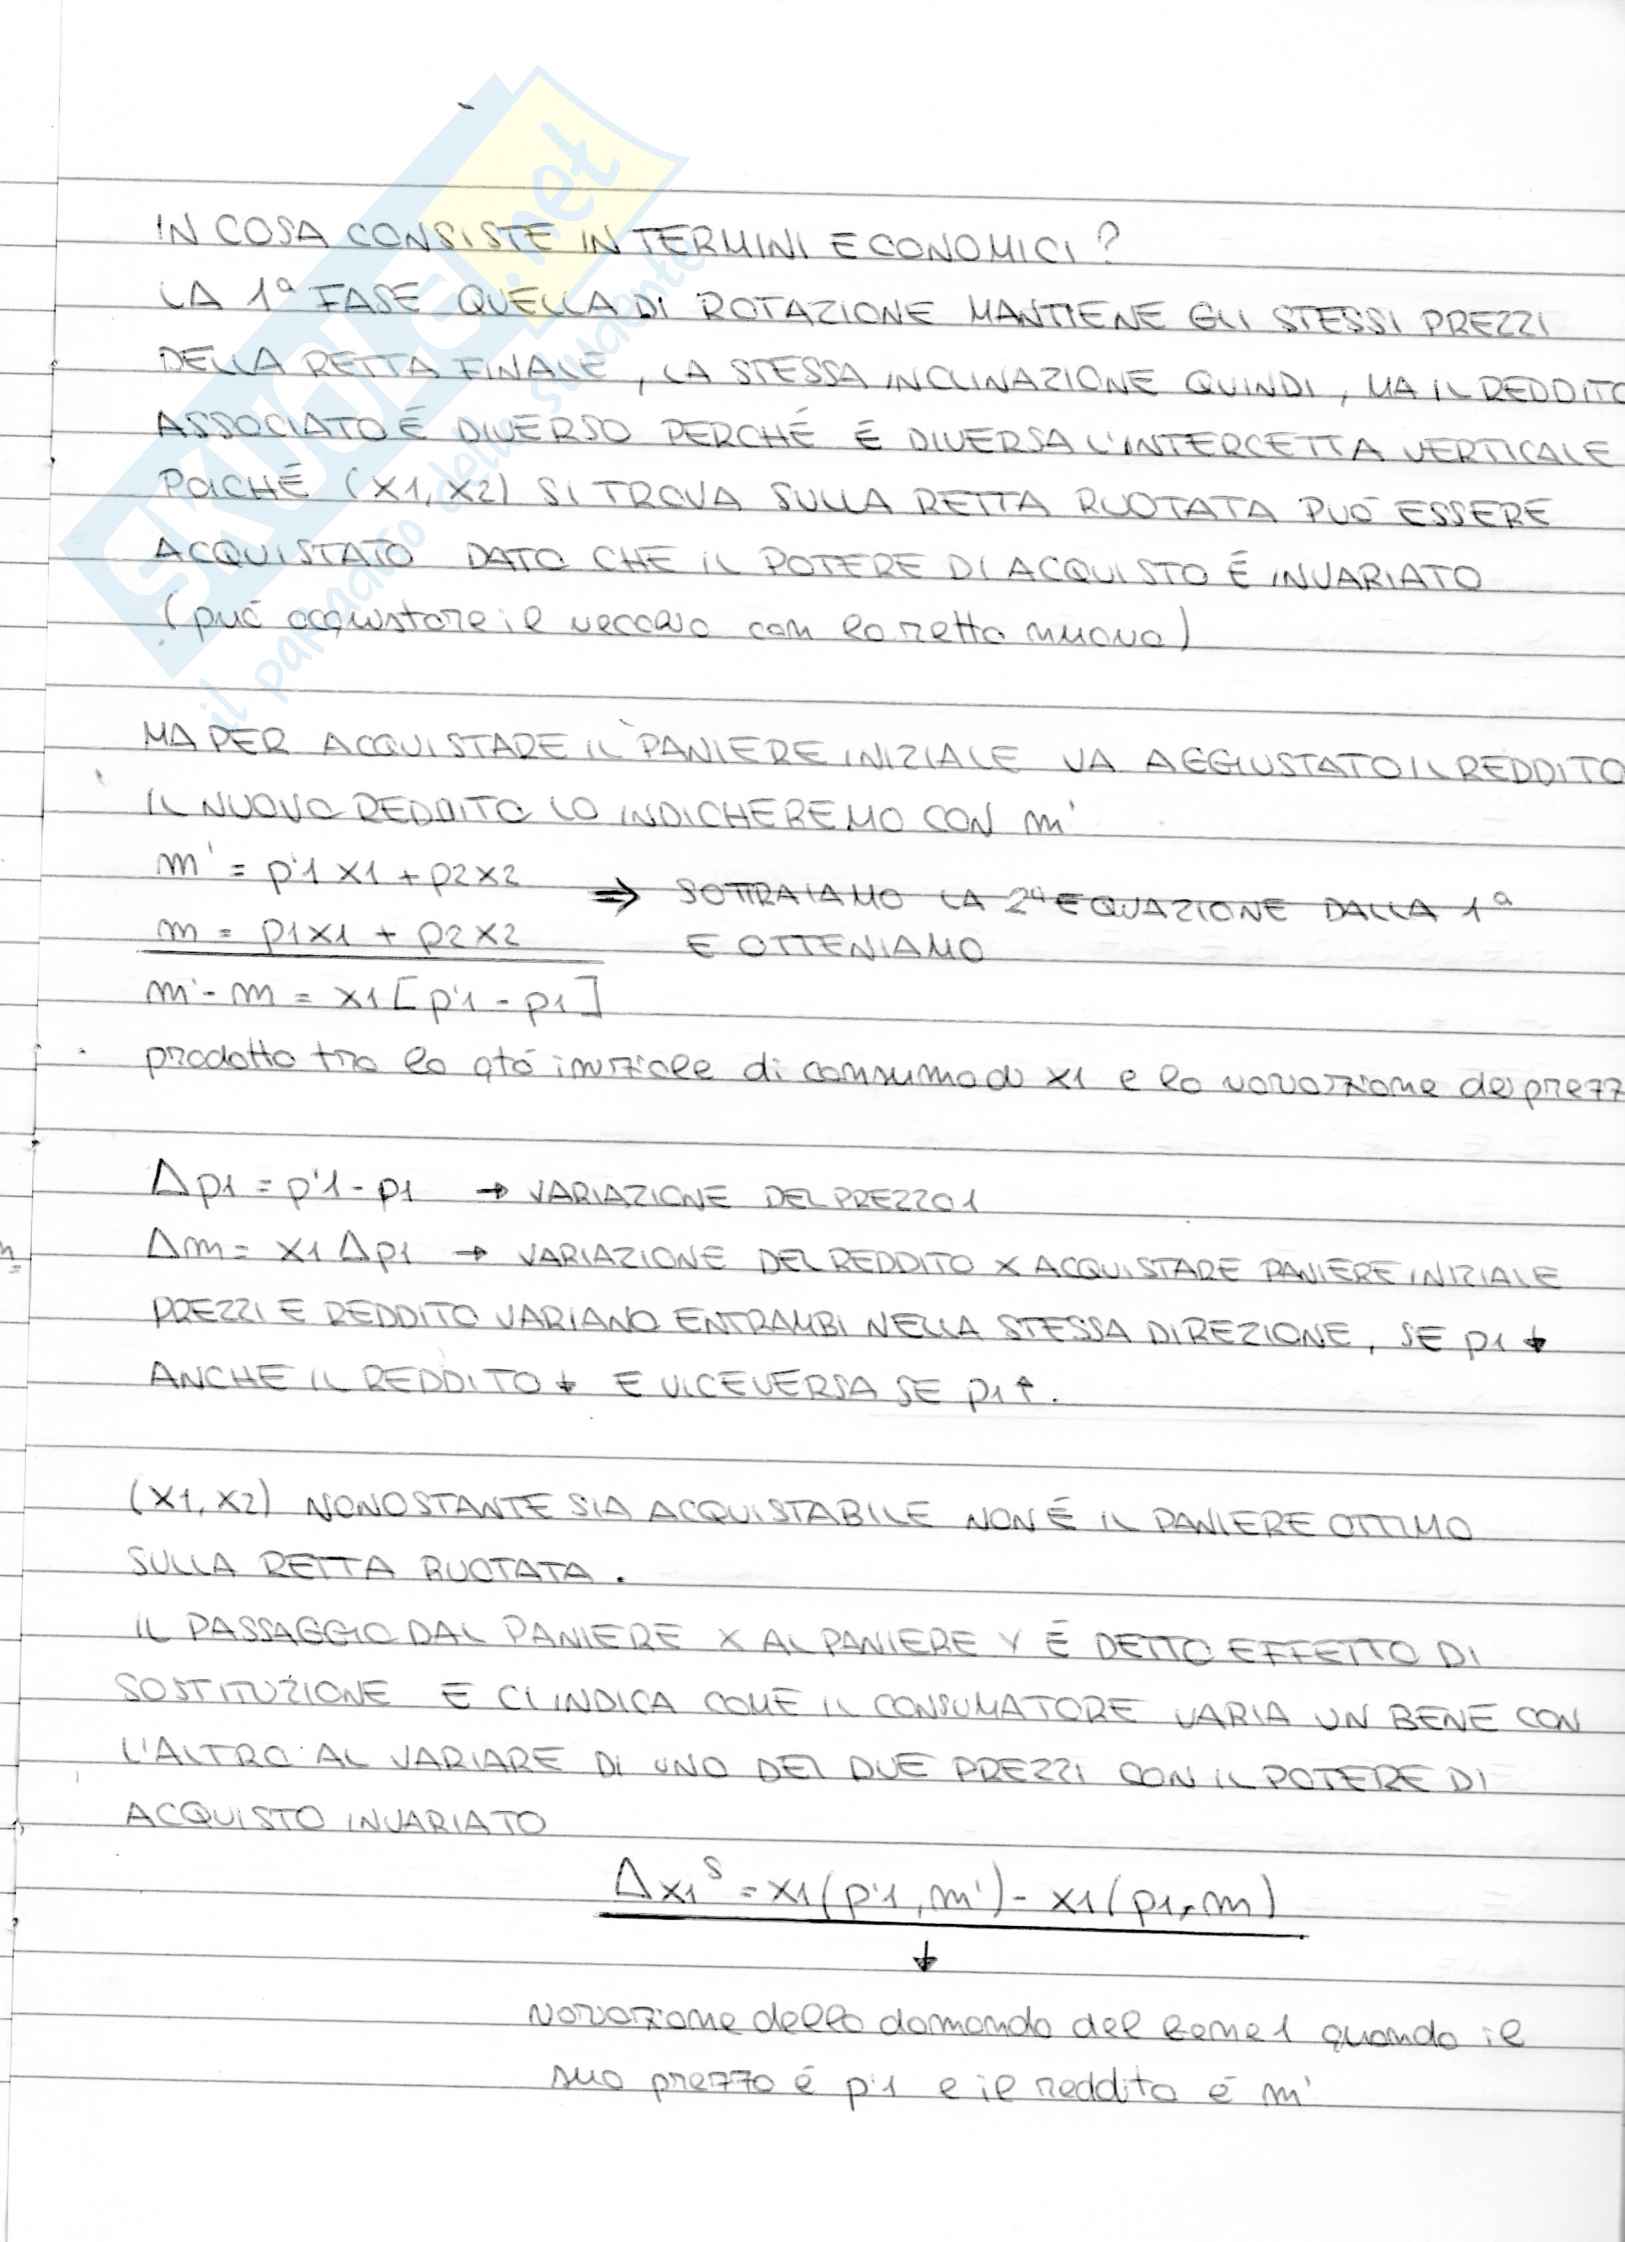 SKUOLA.net
il paradiso dello studente
IN COSA CONSISTE IN TERMINI ECONOMICI?
LA 1ª FASE QUELLA DI ROTAZIONE MANTIENE GLI STESSI PREZZI
DELLA RETTA FINALE, LA STESSA INCLINAZIONE QUINDI, MA IL REDDITO
ASSOCIATO É DIVERSO PERCHÉ É DIVERSA L'INTERCETTA VERTICALE
POICHÉ (X1, X2) SI TROVA SULLA RETTA RUOTATA PUÒ ESSERE
ACQUISTATO DATO CHE IL POTERE DI ACQUISTO É INVARIATO
(può acquistare il vecchio con la retta nuova)
MA PER ACQUISTARE IL PANIERE INIZIALE VA AGGIUSTATO IL REDDITO
IL NUOVO REDDITO LO INDICHEREMO CON m'
m' = p'1 x1 + p2x2 ⇒ SOTTRAIAMO LA 2ª EQUAZIONE DALLA 1ª
m = p1x1 + p2x2 E OTTENIAMO
m' - m = x1 [p'1 - p1]
prodotto tra la qtà iniziale di consumo di x1 e la variazione dei prezz
Δp1 = p'1 - p1 → VARIAZIONE DEL PREZZO 1
Δm = x1 Δp1 → VARIAZIONE DEL REDDITO X ACQUISTARE PANIERE INIZIALE
PREZZI E REDDITO VARIANO ENTRAMBI NELLA STESSA DIREZIONE, SE p1 ↓
ANCHE IL REDDITO ↓ E VICEVERSA SE p1 ↑.
(X1, X2) NONOSTANTE SIA ACQUISTABILE NON É IL PANIERE OTTIMO
SULLA RETTA RUOTATA.
IL PASSAGGIO DAL PANIERE X AL PANIERE Y É DETTO EFFETTO DI
SOSTITUZIONE E CI INDICA COME IL CONSUMATORE VARIA UN BENE CON
L'ALTRO AL VARIARE DI UNO DEI DUE PREZZI CON IL POTERE DI
ACQUISTO INVARIATO
Δx1ˢ = x1(p'1, m') - x1(p1, m)
↓
variazione della domanda del bene 1 quando il
suo prezzo é p'1 e il reddito é m'